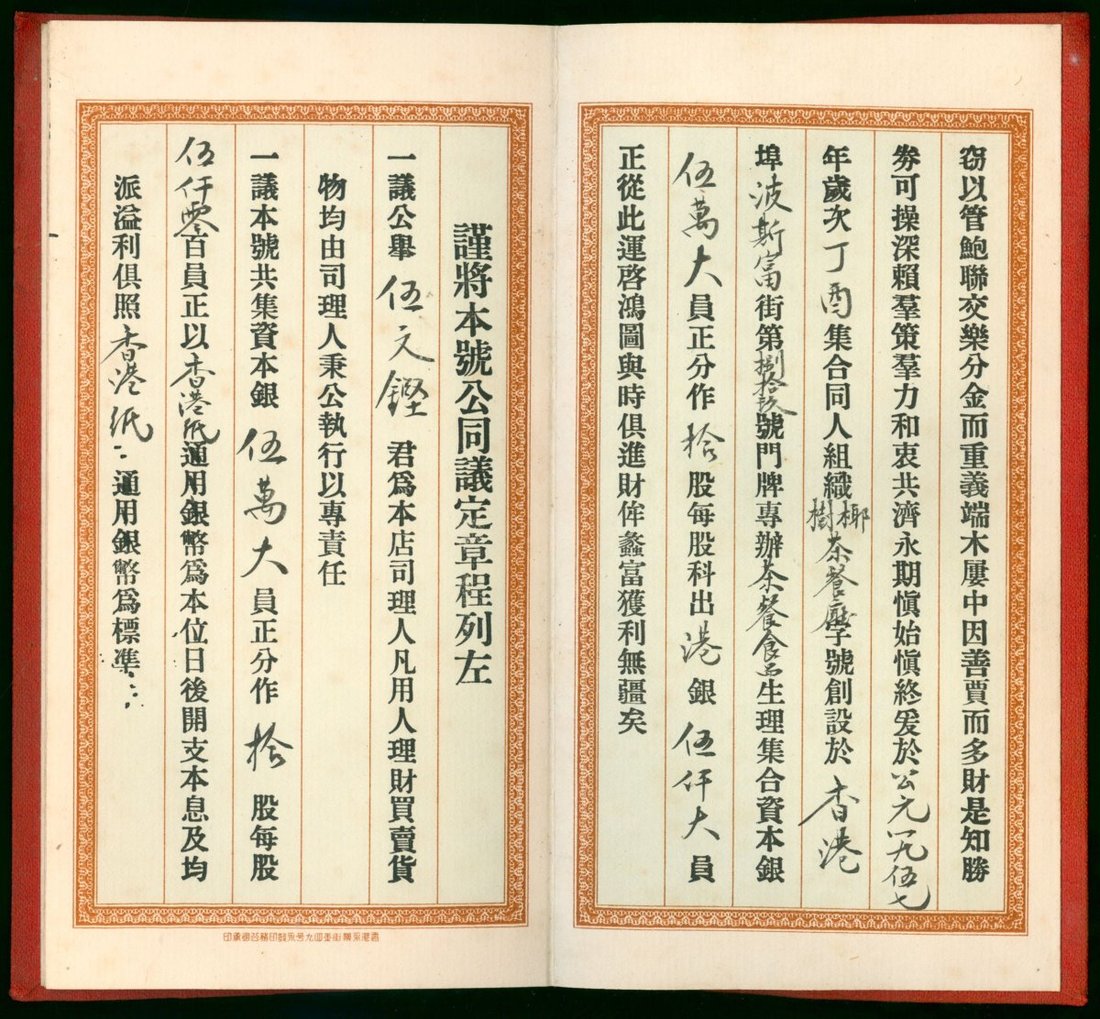 窃以管鮑聯交樂分金而重義端木屢中因善賈而多財是知勝
劵可操深賴羣策羣力和衷共濟永期愼始愼終爰於公元一九伍七
年歲次丁酉集合同人組織椰樹茶餐廳字號創設於香港
埠波斯富街第捌拾玖號門牌專辦茶餐食品生理集合資本銀
伍萬大員正分作拾股每股科出港銀伍仟大員
正從此運啓鴻圖與時俱進財侔蠡富獲利無疆矣
謹將本號公同議定章程列左
一議公舉伍文鏗君爲本店司理人凡用人理財買賣貨
物均由司理人秉公執行以專責任
一議本號共集資本銀伍萬大員正分作拾股每股
伍仟零百員正以香港紙通用銀幣爲本位日後開支本息及均
派溢利俱照香港紙通用銀幣爲標準